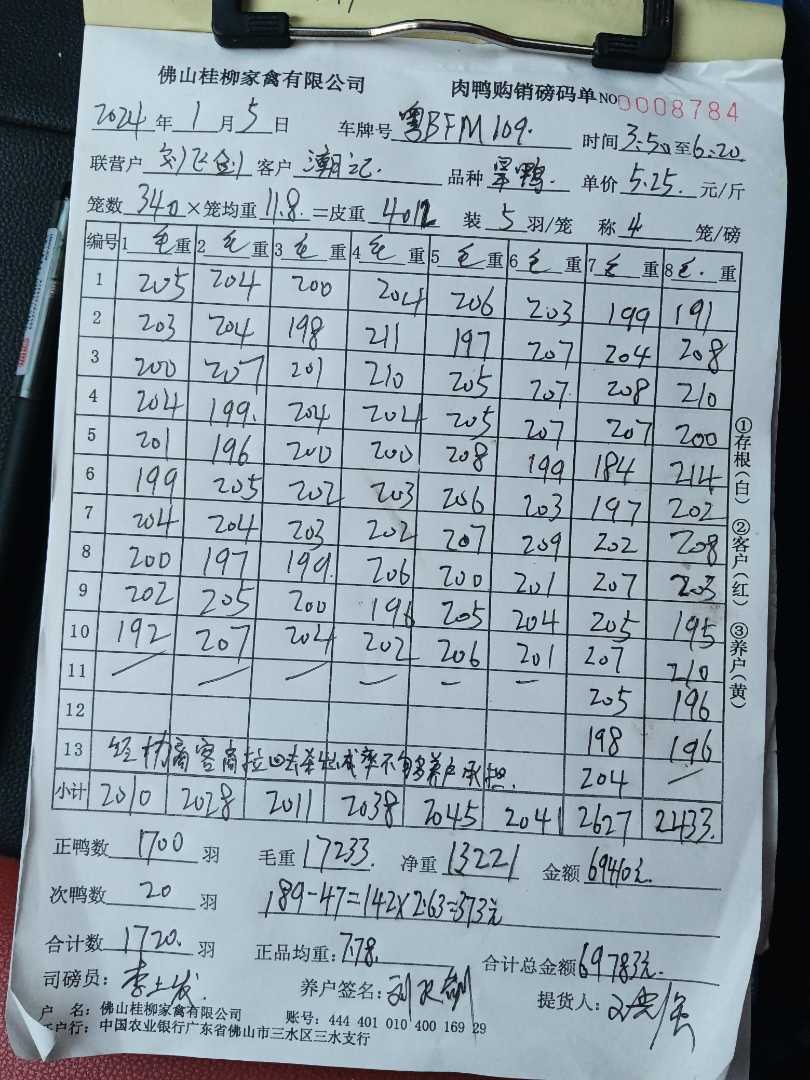 佛山桂柳家禽有限公司 肉鸭购销磅码单 NO 0008784
2024年1月5日 车牌号 粤BFM109. 时间3:50至6:20
联营户 刘飞剑 客户 潮记. 品种 单价5.25.元/斤
笼数 340 ×笼均重 11.8. =皮重 4012 装 5 羽/笼 称 4 笼/磅
编号 1毛重 2毛重 3毛重 4毛重 5毛重 6毛重 7毛重 8毛.重
1 205 204 200 204 206 203 199 191
2 203 204 198 211 197 207 204 208
3 200 207 201 210 205 207 208 210
4 204 199. 204 204 205 207 207 200
5 201 196 200 200 208 199 184 214
6 199 205 202 203 206 203 197 202
7 204 204 203 202 207 209 202 208
8 200 197 199. 206 200 201 207 203
9 202 205 200 196 205 204 205 195
10 192 207 204 202 206 201 207 210
11 205 196
12 198 196
13 经协商客商拉回去杀出成率不够养户承担. 204
小计 2010 2028 2011 2038 2045 2041 2627 2433.
①存根(白) ②客户(红) ③养户(黄)
正鸭数 1700 羽 毛重 17233. 净重 13221 金额 69410元.
次鸭数 20 羽 189-47=142×2.63=373元
合计数 1720. 羽 正品均重: 7.78. 合计总金额 69783元.
司磅员: 李土发. 养户签名: 提货人:
户 名: 佛山桂柳家禽有限公司 账号: 444 401 010 400 169 29
户行: 中国农业银行广东省佛山市三水区三水支行